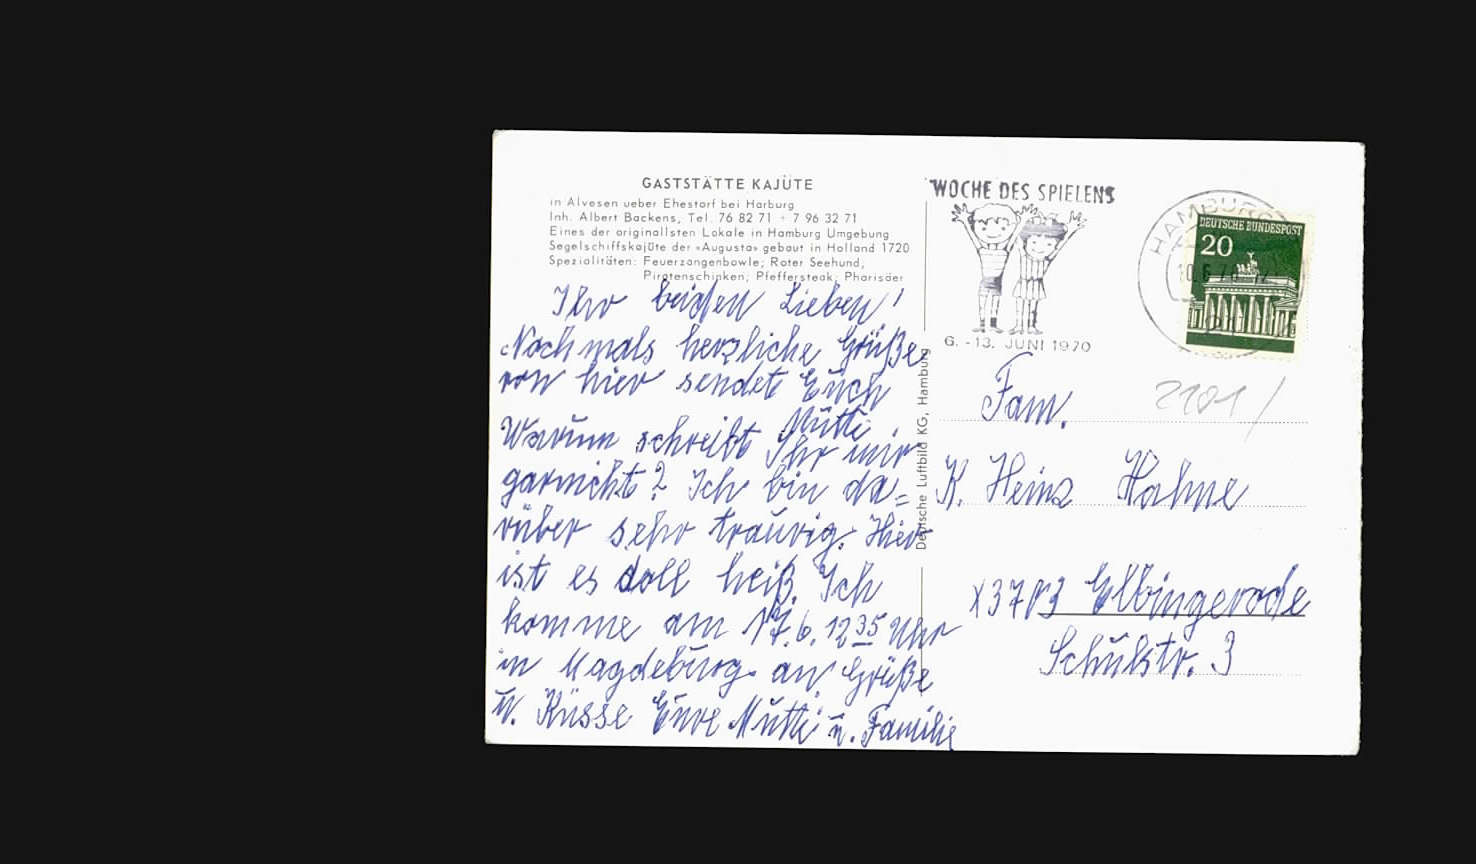 GASTSTÄTTE KAJÜTE
in Alvesen ueber Ehestorf bei Harburg
Inh. Albert Backens, Tel. 76 82 71 + 7 96 32 71
Eines der originallsten Lokale in Hamburg Umgebung
Segelschiffskajüte der «Augusta» gebaut in Holland 1720
Spezialitäten: Feuerzangenbowle; Roter Seehund,
Piratenschinken; Pfeffersteak; Pharisäer
Ihr beiden Lieben!
Nochmals herzliche Grüße
von hier sendet Euch
Mutti.
Warum schreibt Ihr mir
garnicht? Ich bin da=
rüber sehr traurig. Hier
ist es doll heiß. Ich
komme am 17.6. 12 35 Uhr
in Magdeburg an. Grüße
u. Küsse Eure Mutti u. Familie
Deutsche Luftbild KG, Hamburg
WOCHE DES SPIELENS
6. - 13. JUNI 1970
HAMBURG
DEUTSCHE BUNDESPOST
20
2101/
Fam.
K. Heinz Hahne
X3703 Elbingerode
Schulstr. 3